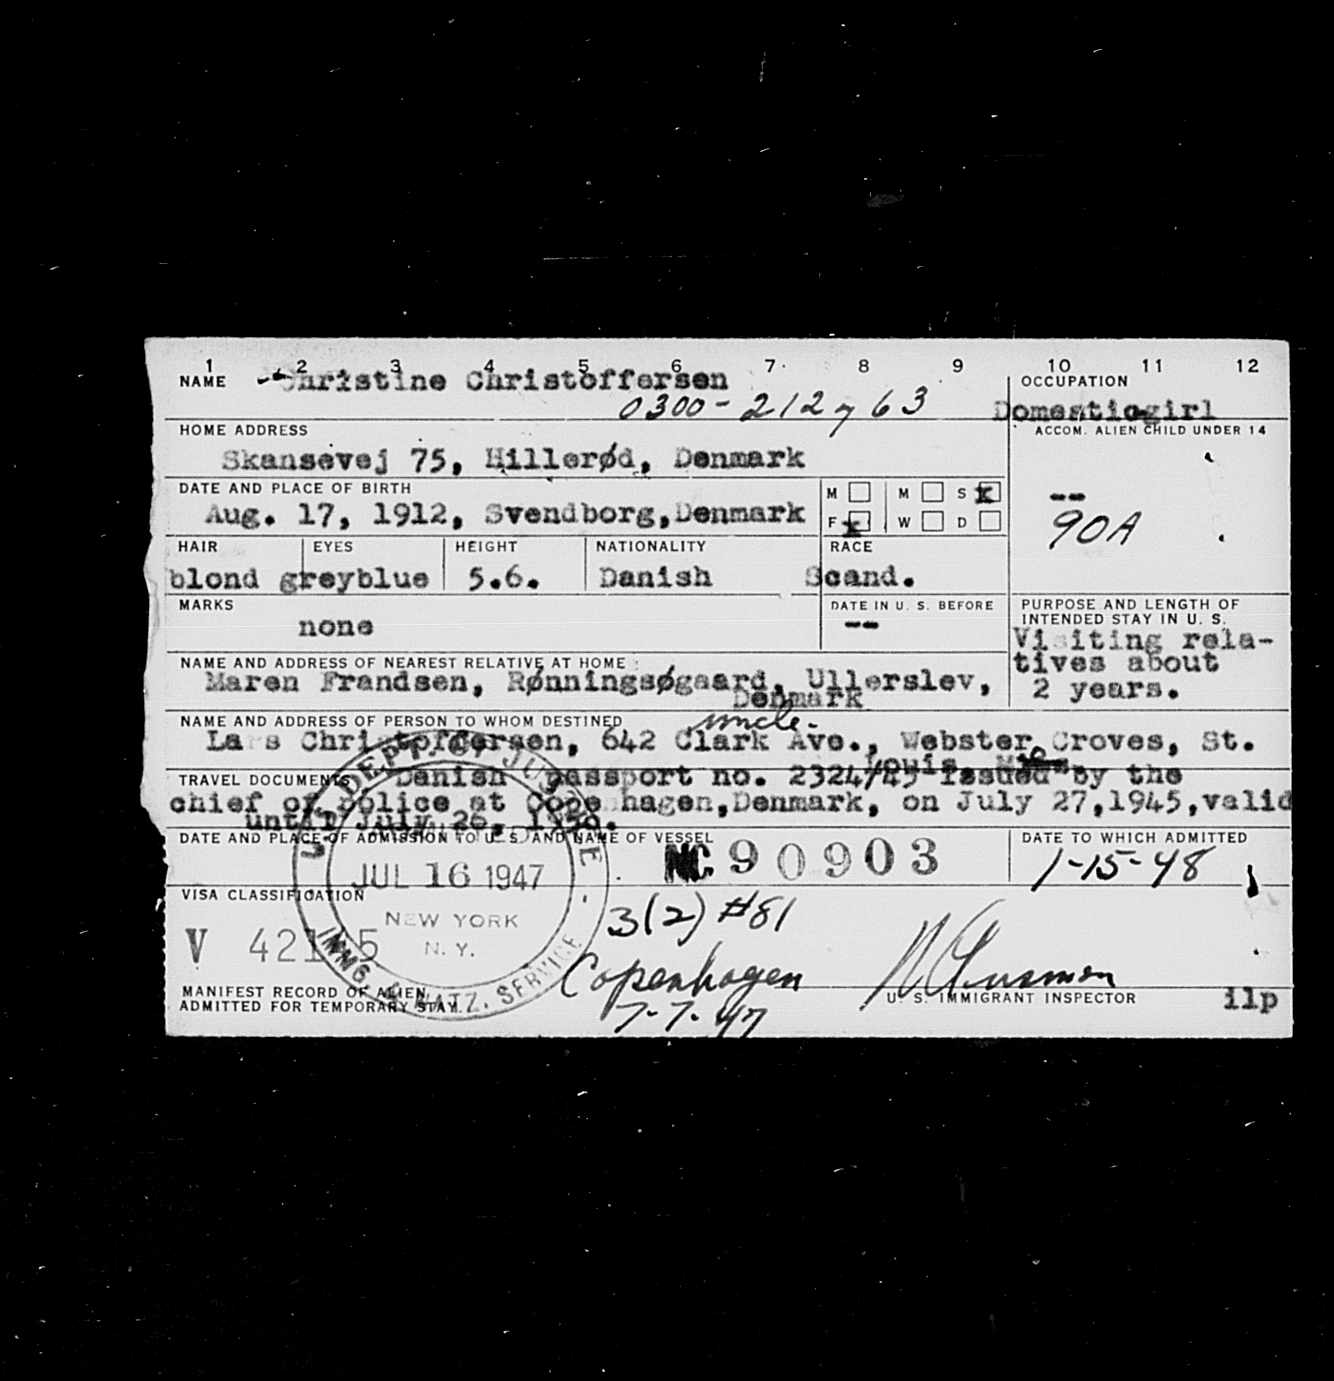 1 2 3 4 5 6 7 8 9 10 11 12
NAME Christine Christoffersen
0300-212 63
OCCUPATION
Domesticgirl
HOME ADDRESS
Skansevej 75, Hillerød, Denmark
ACCOM. ALIEN CHILD UNDER 14
--
90A
DATE AND PLACE OF BIRTH
Aug. 17, 1912, Svendborg,Denmark
M M S x
F x W D
HAIR EYES HEIGHT NATIONALITY RACE
blond greyblue 5.6. Danish Scand.
MARKS
none
DATE IN U. S. BEFORE
--
PURPOSE AND LENGTH OF
INTENDED STAY IN U. S.
Visiting rela-
tives about
2 years.
NAME AND ADDRESS OF NEAREST RELATIVE AT HOME
Maren Frandsen, Rønningsøgaard, Ullerslev,
Denmark
NAME AND ADDRESS OF PERSON TO WHOM DESTINED
uncle-
Lars Christoffersen, 642 Clark Ave., Webster Groves, St.
Louis,
TRAVEL DOCUMENTS Danish passport no. 2324/45 issued by the
chief of police at Copenhagen,Denmark, on July 27,1945,valid
until July 26, 1950.
DATE AND PLACE OF ADMISSION TO U. S. AND NAME OF VESSEL
NC 90903
DATE TO WHICH ADMITTED
1-15-48
U. S. DEPT. OF JUSTICE - IMMG. & NATZ. SERVICE -
JUL 16 1947
NEW YORK
N. Y.
VISA CLASSIFICATION
V
3(2) #81
Copenhagen
7-7-47
MANIFEST RECORD OF ALIEN
ADMITTED FOR TEMPORARY STAY.
U. S. IMMIGRANT INSPECTOR
ilp